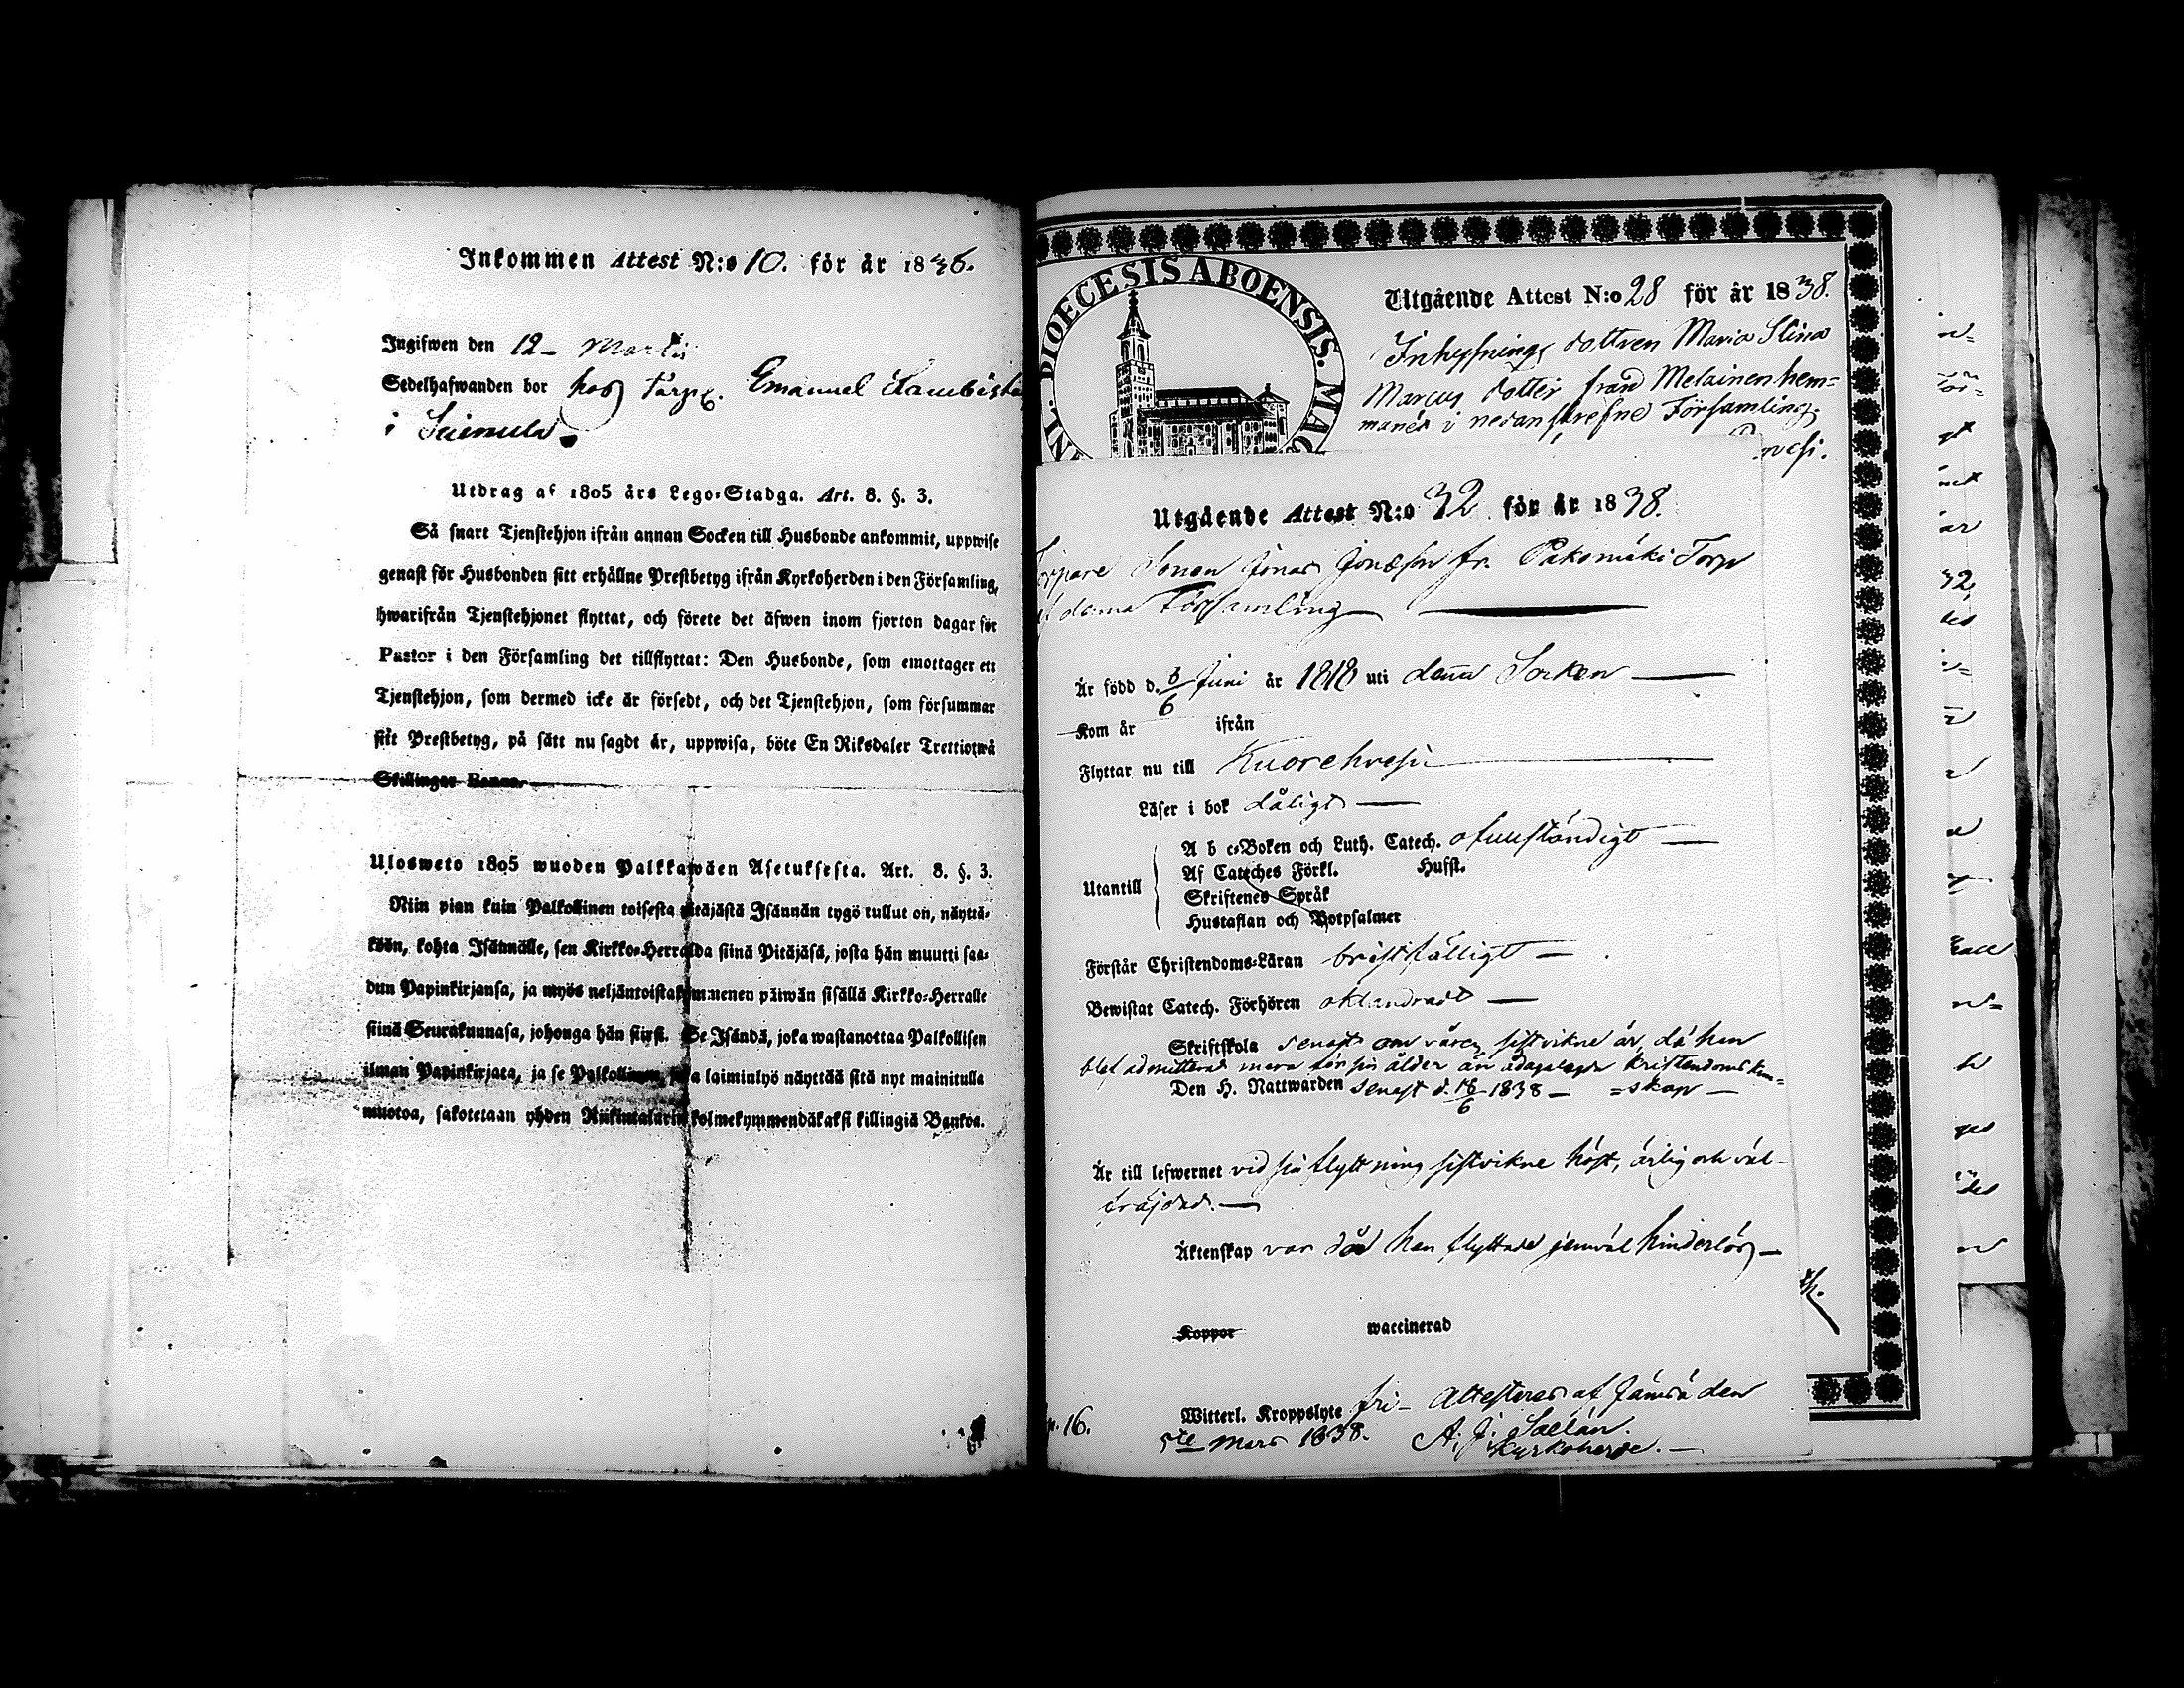 Inkommen Attest N:o 10. för år 1836.
Ingifwen den 12 - Martii
Sedelhafwanden bor hos Torp. Emanuel
i
Utdrag af 1805 års Lego-Stadga. Art. 8. §. 3.
Så snart Tjenstehjon ifrån annan Socken till Husbonde ankommit, uppwise
genast för Husbonden sitt erhållne Prestbetyg ifrån Kyrkoherden i den Församling,
hwarifrån Tjenstehjonet flyttat, och förete det äfwen inom fjorton dagar för
Pastor i den Församling det tillflyttat: Den Husbonde, som emottager ett
Tjenstehjon, som dermed icke är försedt, och det Tjenstehjon, som försummar
sitt Prestbetyg, på sätt nu sagdt är, uppwisa, böte En Riksdaler Trettiotwå
Skillingar Banco.
Ulosweto 1805 wuoden Palkkawäen Asetuksesta. Art. 8. §. 3.
Niin pian kuin Palkollinen toisesta pitäjästä Isännän tygö tullut on, näyttä-
köön, kohta Isännälle, sen Kirkko-Herralda siinä Pitäjäsä, josta hän muutti saa-
dun Papinkirjansa, ja myös neljäntoistakymmenen päiwän sisällä Kirkko-Herralle
siinä Seurakunnasa, johonga hän siirsi. Se Isändä, joka wastanottaa Palkollisen
ilman Papinkirjata, ja se Palkollinen, joka laiminlyö näyttää sitä nyt mainitulla
muotoa, sakotetaan yhden Riikintalarin kolmekymmendäkaksi killingiä Bankoa.
DIOECESIS ABOENSIS. MAG
Utgående Attest N:o 28 för år 1838.
Inhysings dottren Maria Stina
Marcus dotter från Melainen hem=
manet i nedanskrefne Församling.
vesi.
Utgående Attest N:o 32 för år 1838.
Torpare Sonen Jonas Jonæson fr. Pakomäki Torp
denna Församling
Är född d. 6 Juni år 1818 uti denna Socken
6
Kom år ifrån
Flyttar nu till Kuorehvesi
Läser i bok dåligt
Utantill
A b c-Boken och Luth. Catech. ofullständigt
Af Cateches Förkl. Hufst.
Skriftenes Språk
Hustaflan och Botpsalmer
Förstår Christendoms-Läran bristfälligt
Bewistat Catech. Förhören oklandradt
Skriftskola senast om våren sistvikne år, då han
blef admitterad mera för sin ålder än ådagalagde Kristendoms kun=
Den H. Nattwarden senast d. 18/6 1838 - =skap
Är till lefwernet vid sin flyttning sistvikne höst, ärlig och väl-
fräjdad.
Äktenskap var då han flyttade jemväl hinderlös
Koppor waccinerad
Witterl. Kroppslyte fri- Attesteras af Jämsä den
p. 16.
5te Mars 1838. A. J. Saelan.
Kyrkoherde.